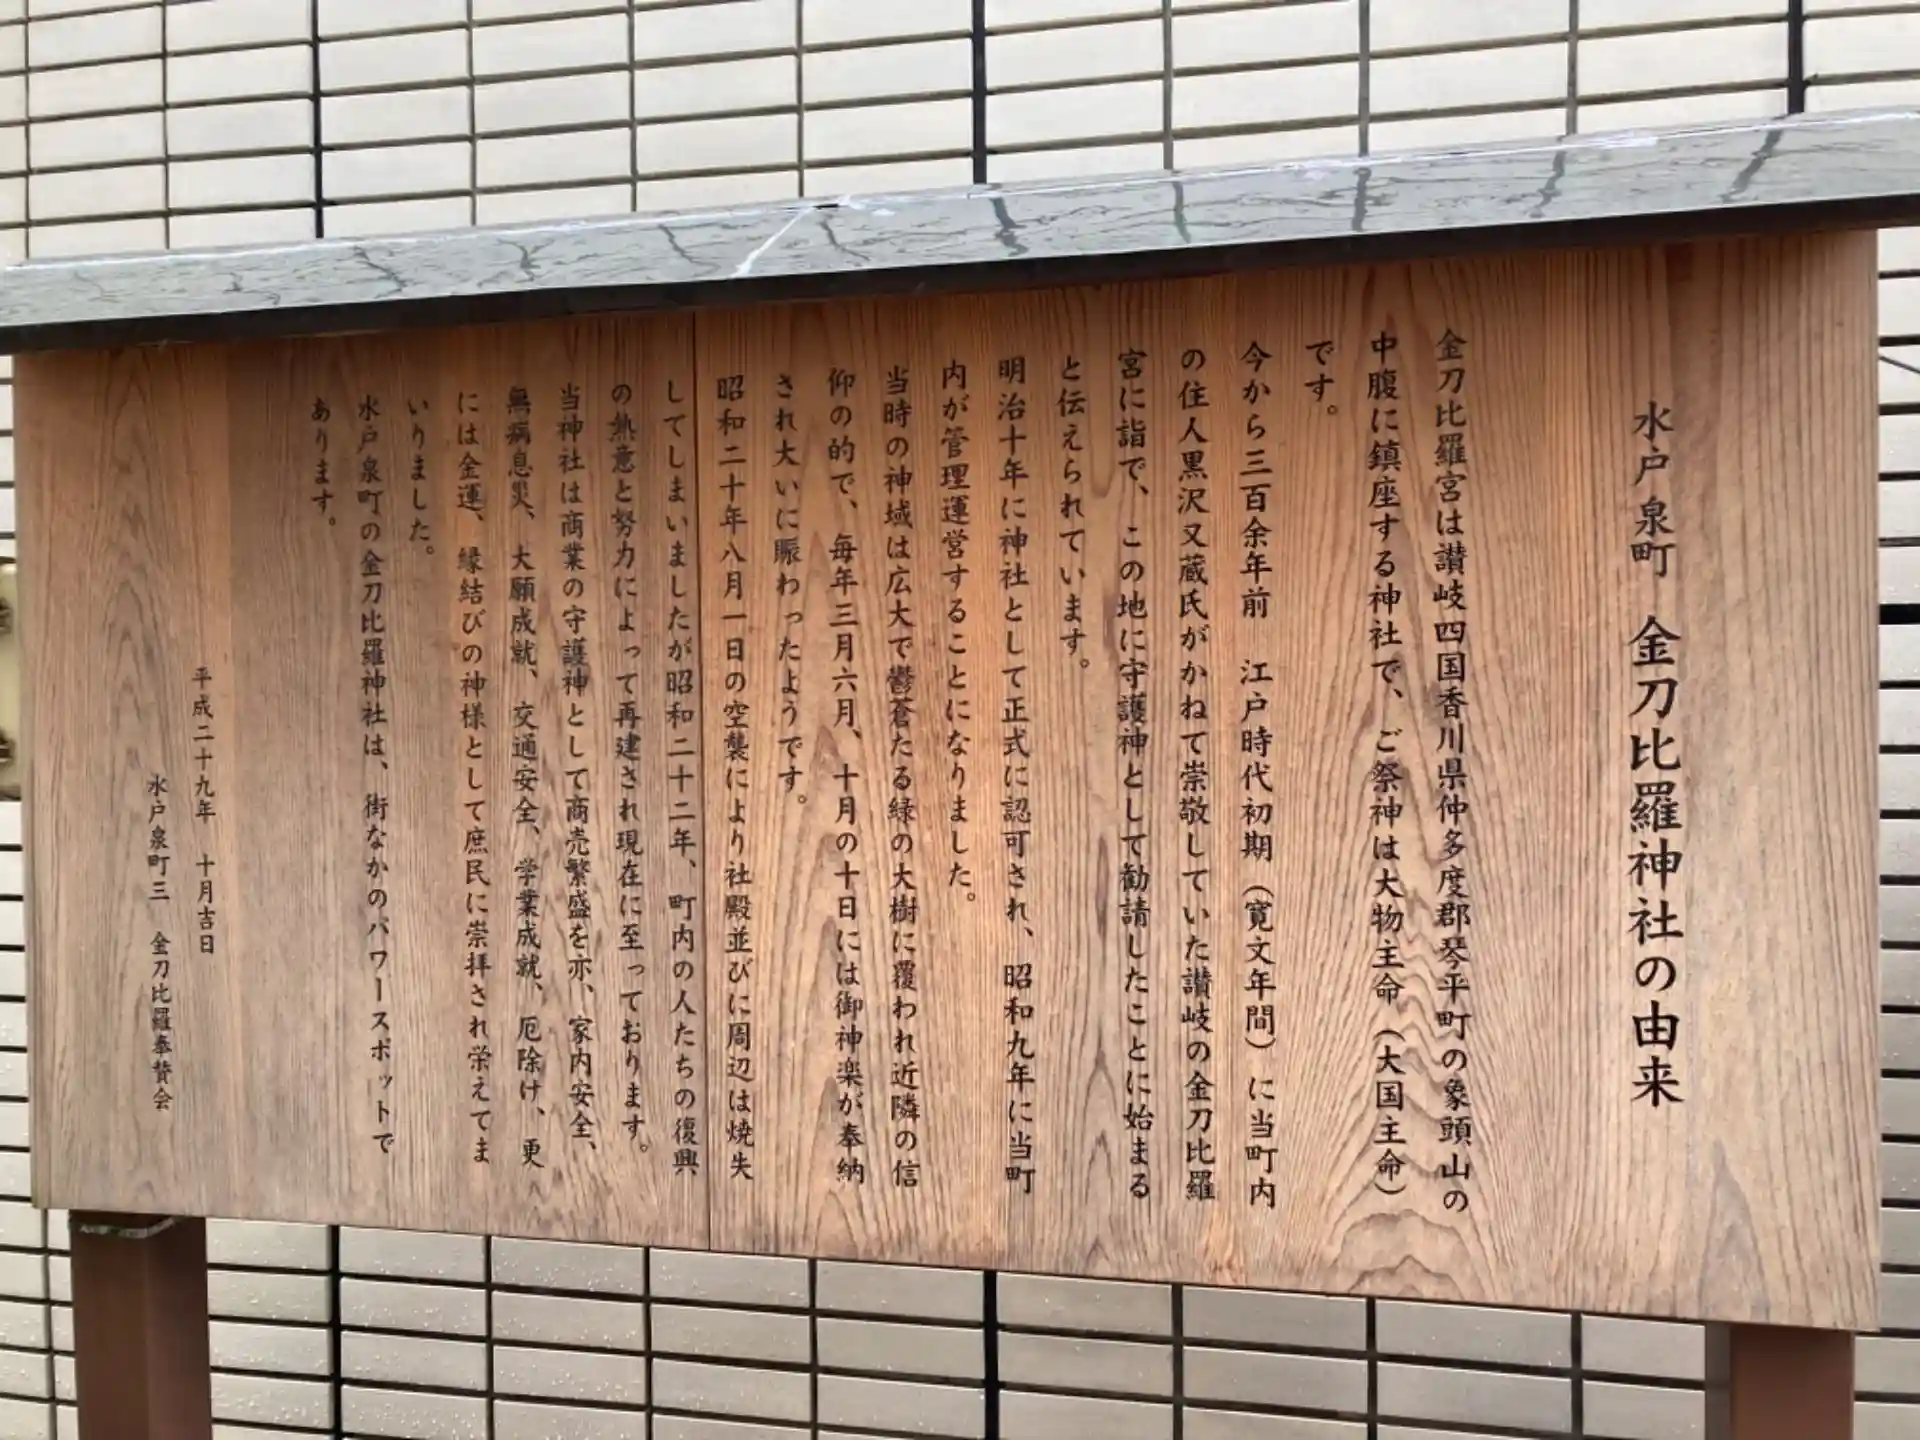 水戸泉町　金刀比羅神社の由来
金刀比羅宮は讃岐四国香川県仲多度郡琴平町の象頭山の
中腹に鎮座する神社で、ご祭神は大物主命（大国主命）
です。
今から三百余年前　江戸時代初期（寛文年間）に当町内
の住人黒沢又蔵氏がかねて崇敬していた讃岐の金刀比羅
宮に詣で、この地に守護神として勧請したことに始まる
と伝えられています。
明治十年に神社として正式に認可され、昭和九年に当町
内が管理運営することになりました。
当時の神域は広大で鬱蒼たる緑の大樹に覆われ近隣の信
仰の的で、毎年三月六月、十月の十日には御神楽が奉納
され大いに賑わったようです。
昭和二十年八月一日の空襲により社殿並びに周辺は焼失
してしまいましたが昭和二十二年、町内の人たちの復興
の熱意と努力によって再建され現在に至っております。
当神社は商業の守護神として商売繁盛を亦、家内安全、
無病息災、大願成就、交通安全、学業成就、厄除け、更
には金運、縁結びの神様として庶民に崇拝され栄えてま
いりました。
水戸泉町の金刀比羅神社は、街なかのパワースポットで
あります。
平成二十九年　十月吉日
水戸泉町三　金刀比羅奉賛会